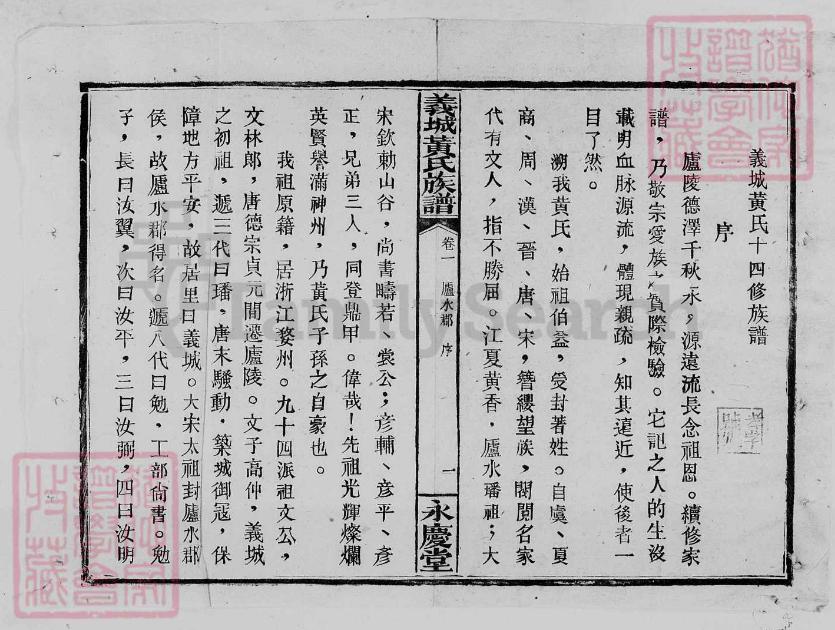 義城黃氏十四修族譜
序
廬陵德澤千秋永，源遠流長念祖恩。續修家
譜，乃敬宗愛族之實際檢驗。它記之人的生沒
載明血脉源流，體現親疏，知其遠近，使後者一
目了然。
溯我黃氏，始祖伯益，受封著姓。自虞、夏
商、周、漢、晉、唐、宋，簪纓望族，閥閱名家
代有文人，指不勝屈。江夏黄香，廬水璠祖；大
義城黃氏族譜
卷一 廬水郡 序
一
永慶堂
宋欽勅山谷，尚書疇若、裳公；彦輔、彦平、彦
正，兄弟三人，同登鼎甲。偉哉！先祖光輝燦爛
英賢譽滿神州，乃黃氏子孫之自豪也。
我祖原籍，居浙江婺州。九十四派祖文公，
文林郎，唐德宗貞元間遷廬陵。文子高仲，義城
之初祖，遞三代曰璠，唐末騷動，築城御寇，保
障地方平安，故居里曰義城。大宋太祖封廬水郡
侯，故廬水郡得名。遞八代曰勉，工部尙書。勉
子，長曰汝翼，次曰汝平，三曰汝弼，四曰汝明
FamilySearch